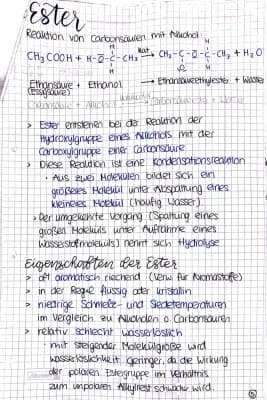 Ester
Reaktion von Carbonsäuren mit Alkohol:
H H
CH₃COOH + H-O-C-CH₃ Kat. CH₃-C-O-C-CH₃ + H₂O
H O H
Ethansäure + Ethanol → Ethansäureethylester + Wasser
(Essigsäure)
Carbonsäure + Alkohol
> Ester entstehen bei der Reaktion der
Hydroxylgruppe eines Alkohols mit der
Carboxylgruppe einer Carbonsäure
> Diese Reaktion ist eine Kondensationsreaktion
• Aus zwei Molekülen bildet sich ein
größeres Molekül unter Abspaltung eines
kleineres Molekül (häufig Wasser)
> Der umgekehrte Vorgang (Spaltung eines
großen Moleküls unter Aufnahme eines
Wasserstoffmoleküls) nennt sich Hydrolyse
Eigenschaften der Ester
> oft aromatisch riechend (Verw. für Aromastoffe)
> in der Regel flüssig oder kristallin
> niedrige Schmelz- und Siedetemperaturen
im Vergleich zu Alkoholen o. Carbonsäuren
> relativ schlecht wasserlöslich
• mit steigender Molekülgröße wird
wasserlöslichkeit geringer, da die Wirkung
der polaren Estergruppe im Verhältnis
zum unpolaren Alkylrest schwächer wird.